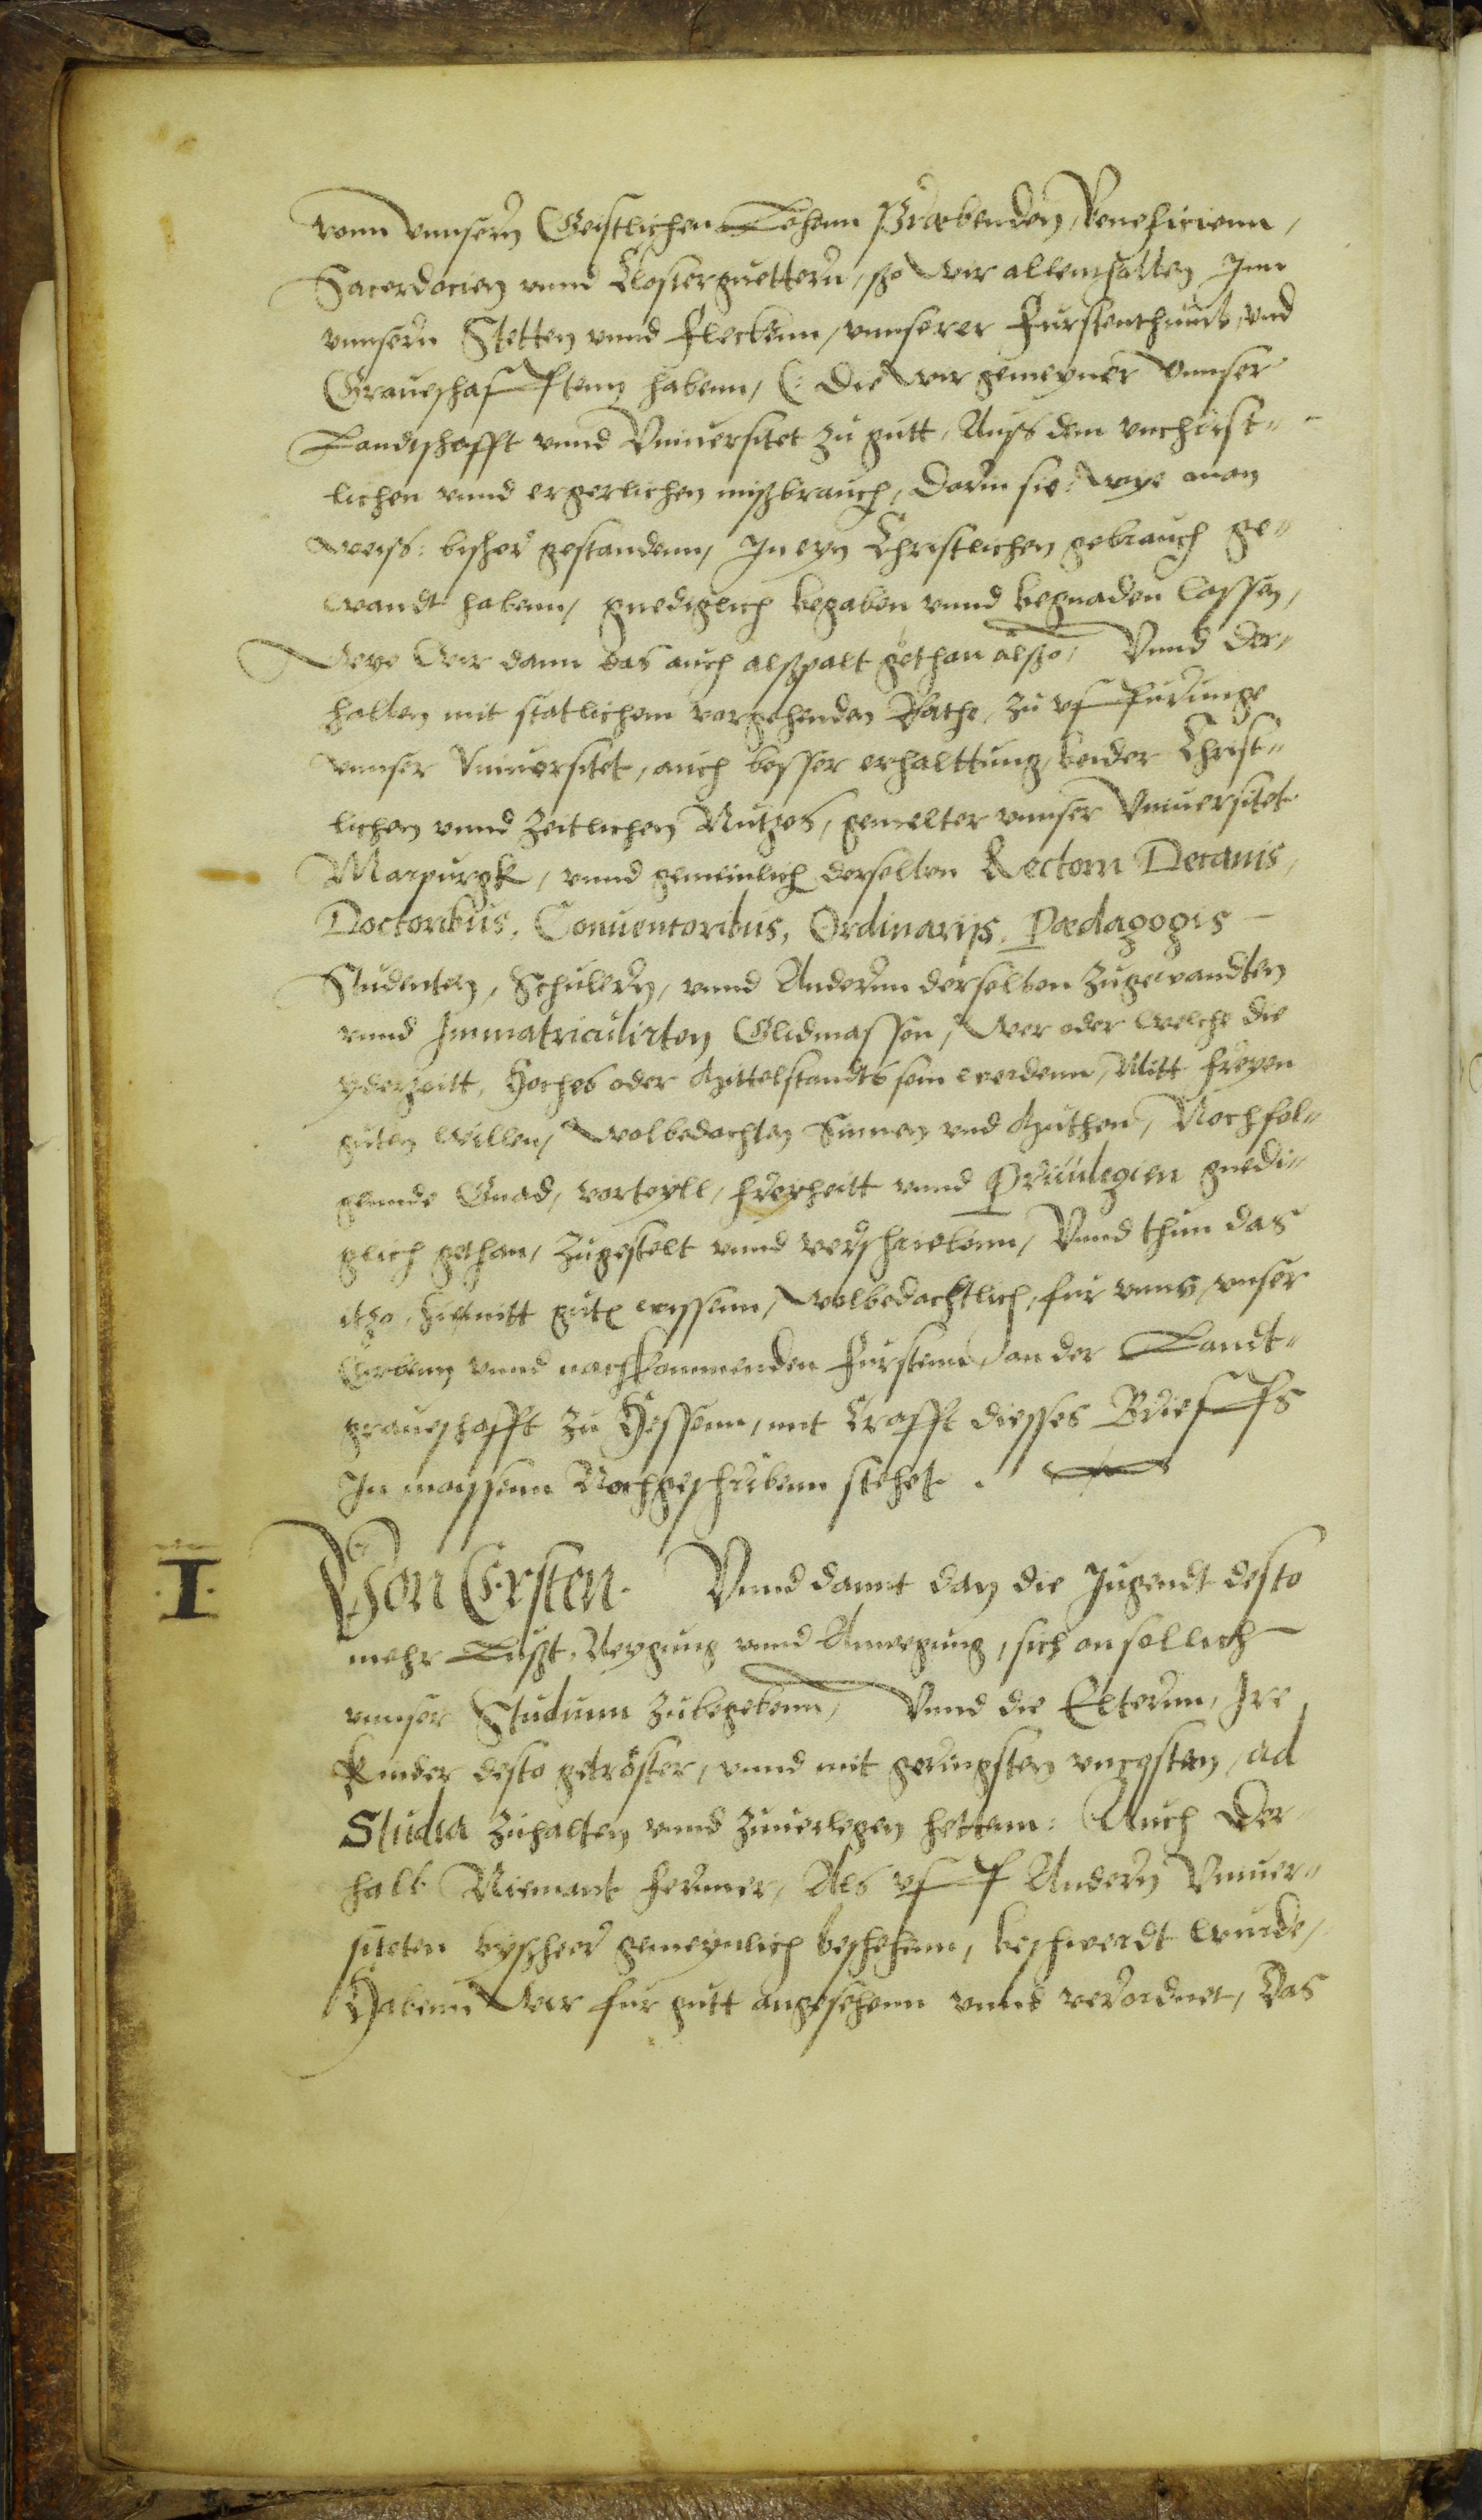 vonn vnnsern Geistlichen Lehenn Præbenden, Beneficienn,
Sacerdocien vnnd Clostergüettern, ßo wir allenthalben Inn
vnnsern Stetten vnnd Fleckenn, vnnserer Fürstenthumb, vnd
Graueschafftenn habenn, (: Die wir gemeyner vnnser
Landtschafft vnnd Vniuersitet zu gutt, Auss dem vnchrist-
lichen vnnd ergerlichen mißbrauch, darin sie: wye man
weiss: bisher gestandenn, In eyn Christlichen gebrauch ge-
wandt habenn, gnediglich begaben vnnd begnaden lassen,
Wye wir dann das auch alßpalt gethan alßo, Vnnd der-
halben mit statlichem vorgehenden Rathe, zu vffürunge
vnnser Vniuersitet, auch besser erhalttung, beider Christ-
lichen vnnd Zeitlichen Nutzes, gemelter vnnser Vniuersitet
Marpurgk, vnnd gemeinlich derselben Rectorn Decanis,
Doctoribus, Conuentoribus, Ordinarijs, Pædagogis
Studenten, Schulern, vnnd Anderenn derselben zugewandten
vnnd Immatriculirten Glidmassen, wer oder welche die
yderzeitt, Hoches oder Mittelstandts sein werdenn, Mitt freyen
guten willen, wolbedochten Sinnen vnd Muthen, Nochfol-
gennde Gnad, vorteyll, freyheitt vnnd Priuilegien gnedi-
glich gethan, Zugestelt vnnd verschriebenn, Vnnd thun das
itzo, hiemitt gutt wissenn, wolbedachtlich, fur vnns, vnser
Erbenn vnnd nachkommenden Furstenn, an der Landt-
graueschafft zu Hessenn, mit Crafft diesses Brieffs
In massenn Nochgeschribenn stehet.
.I.
Von Ersten. Vnnd damit dan die Jugendt desto
mehr Lußt, Neygung vnnd Anregung, sich an sollich
vnnser Studium zubegebenn, Vnnd die Elternn, Ire
Kinder desto getröster, vnnd mit geringsten vncosten, ad
Studia zuhalten vnnd zuuerlegen hettenn: Auch der
halb Niemant ferrner, Als vff Andern Vniuer-
siteten byßheer gemeynlich beschehenn, beschwerdt wurde,
Habenn wir fur gutt angesehenn vnnd verordnet, Das